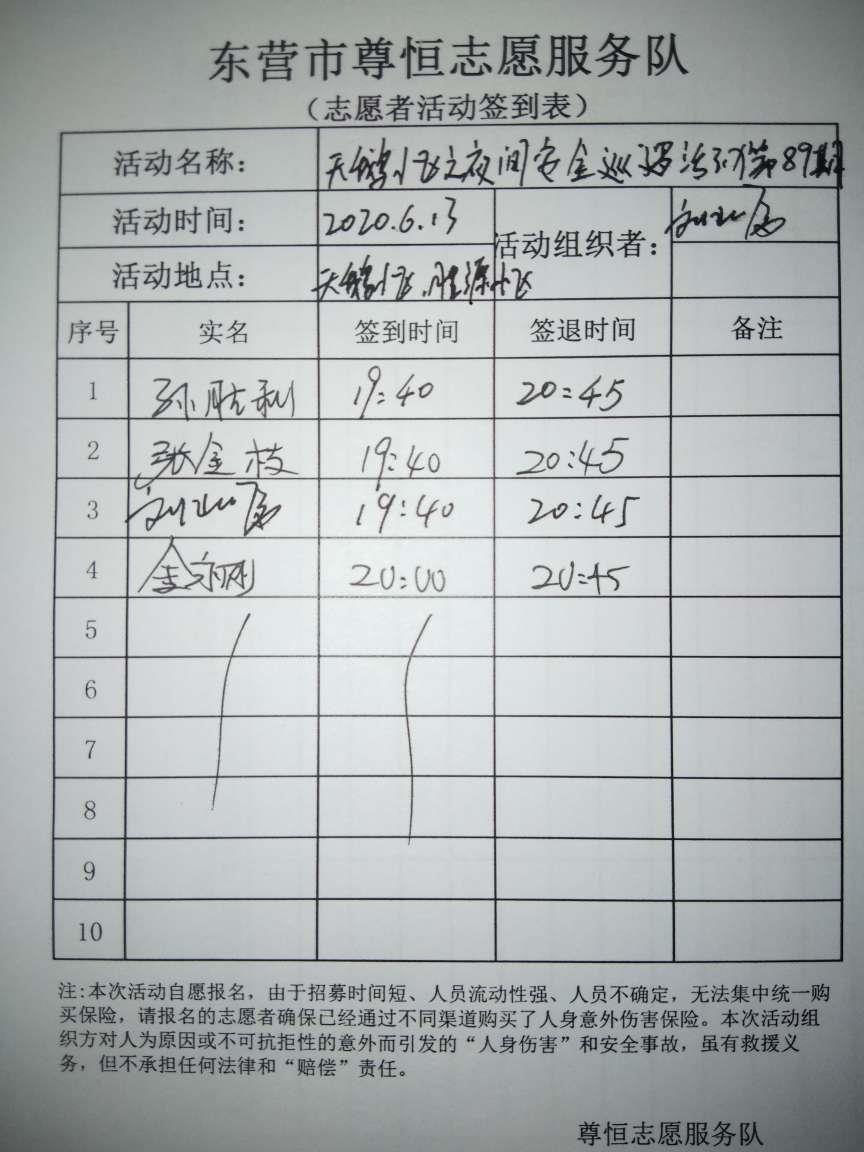 东营市尊恒志愿服务队
(志愿者活动签到表)
活动名称: 天鹅小区夜间安全巡逻活动第89期
活动时间: 2020.6.13 活动组织者:
活动地点: 天鹅小区、胜源小区
序号 实名 签到时间 签退时间 备注
1 孙胜利 19:40 20:45
2 张金枝 19:40 20:45
3 19:40 20:45
4 20:00 20:45
5
6
7
8
9
10
注:本次活动自愿报名，由于招募时间短、人员流动性强、人员不确定，无法集中统一购
买保险，请报名的志愿者确保已经通过不同渠道购买了人身意外伤害保险。本次活动组
织方对人为原因或不可抗拒性的意外而引发的“人身伤害”和安全事故，虽有救援义
务，但不承担任何法律和“赔偿”责任。
尊恒志愿服务队